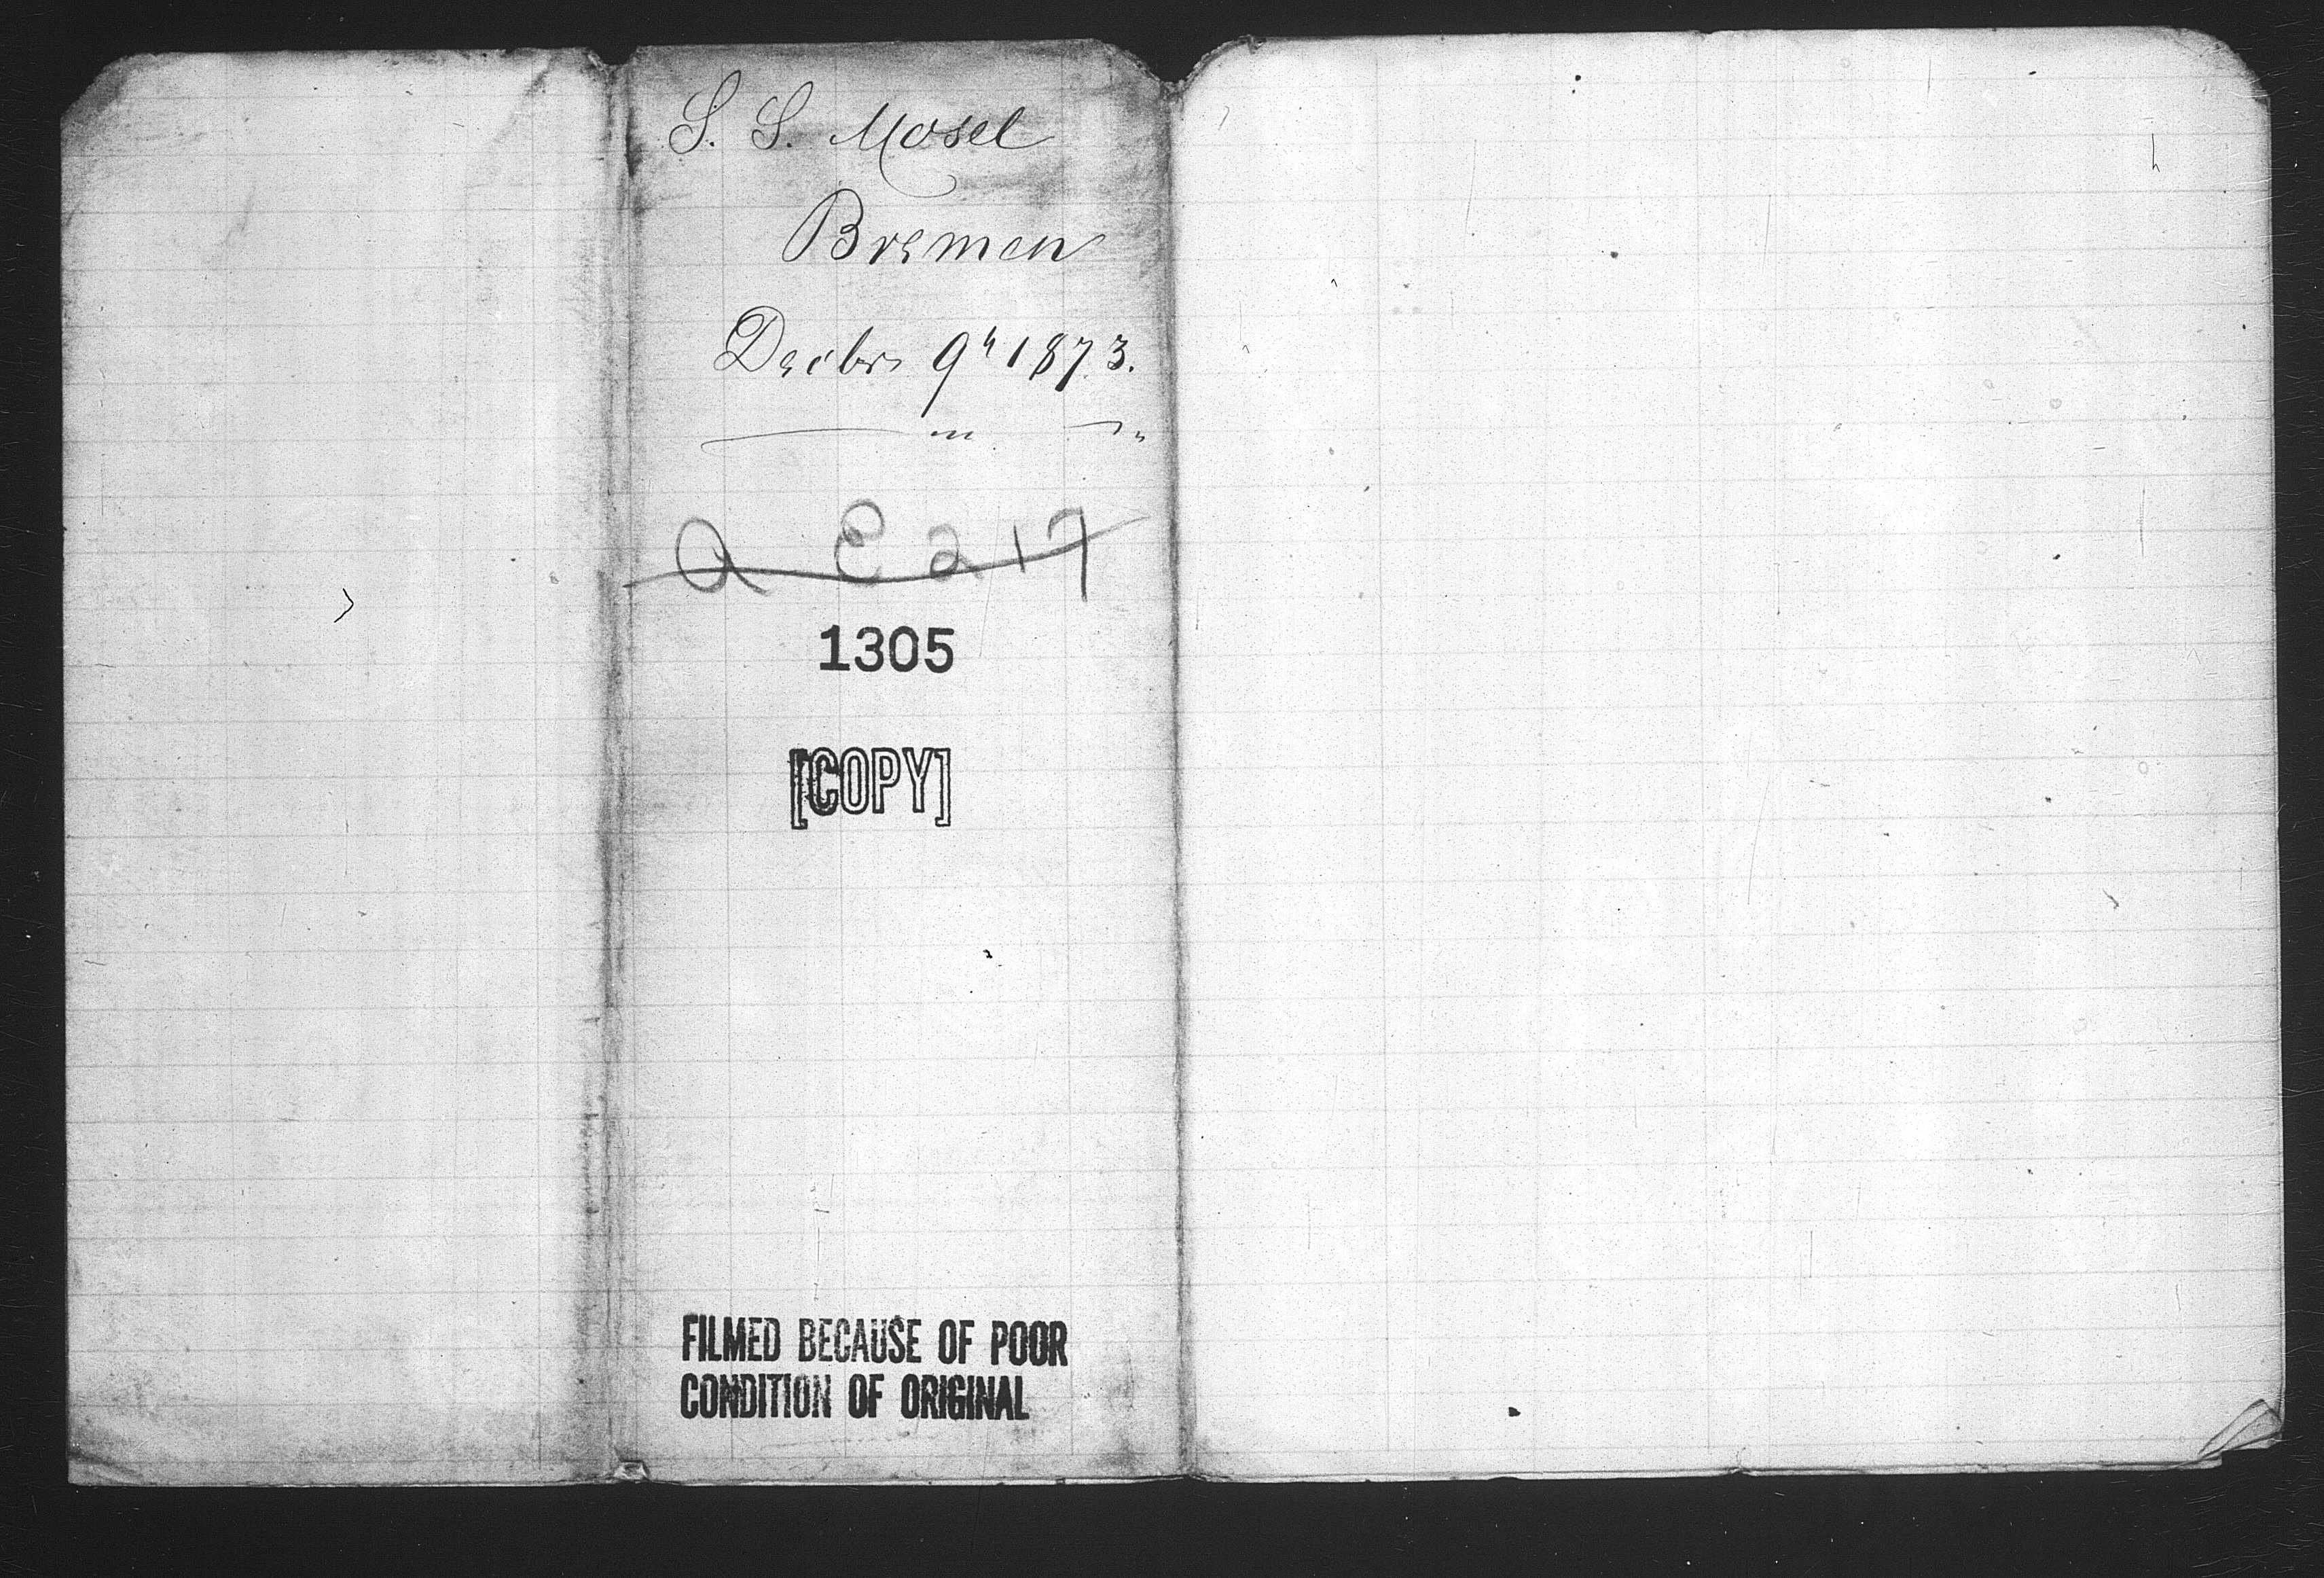 S. S. Mosel
Bremen
Decbr 9h 1873.
1305
[COPY]
FILMED BECAUSE OF POOR
CONDITION OF ORIGINAL